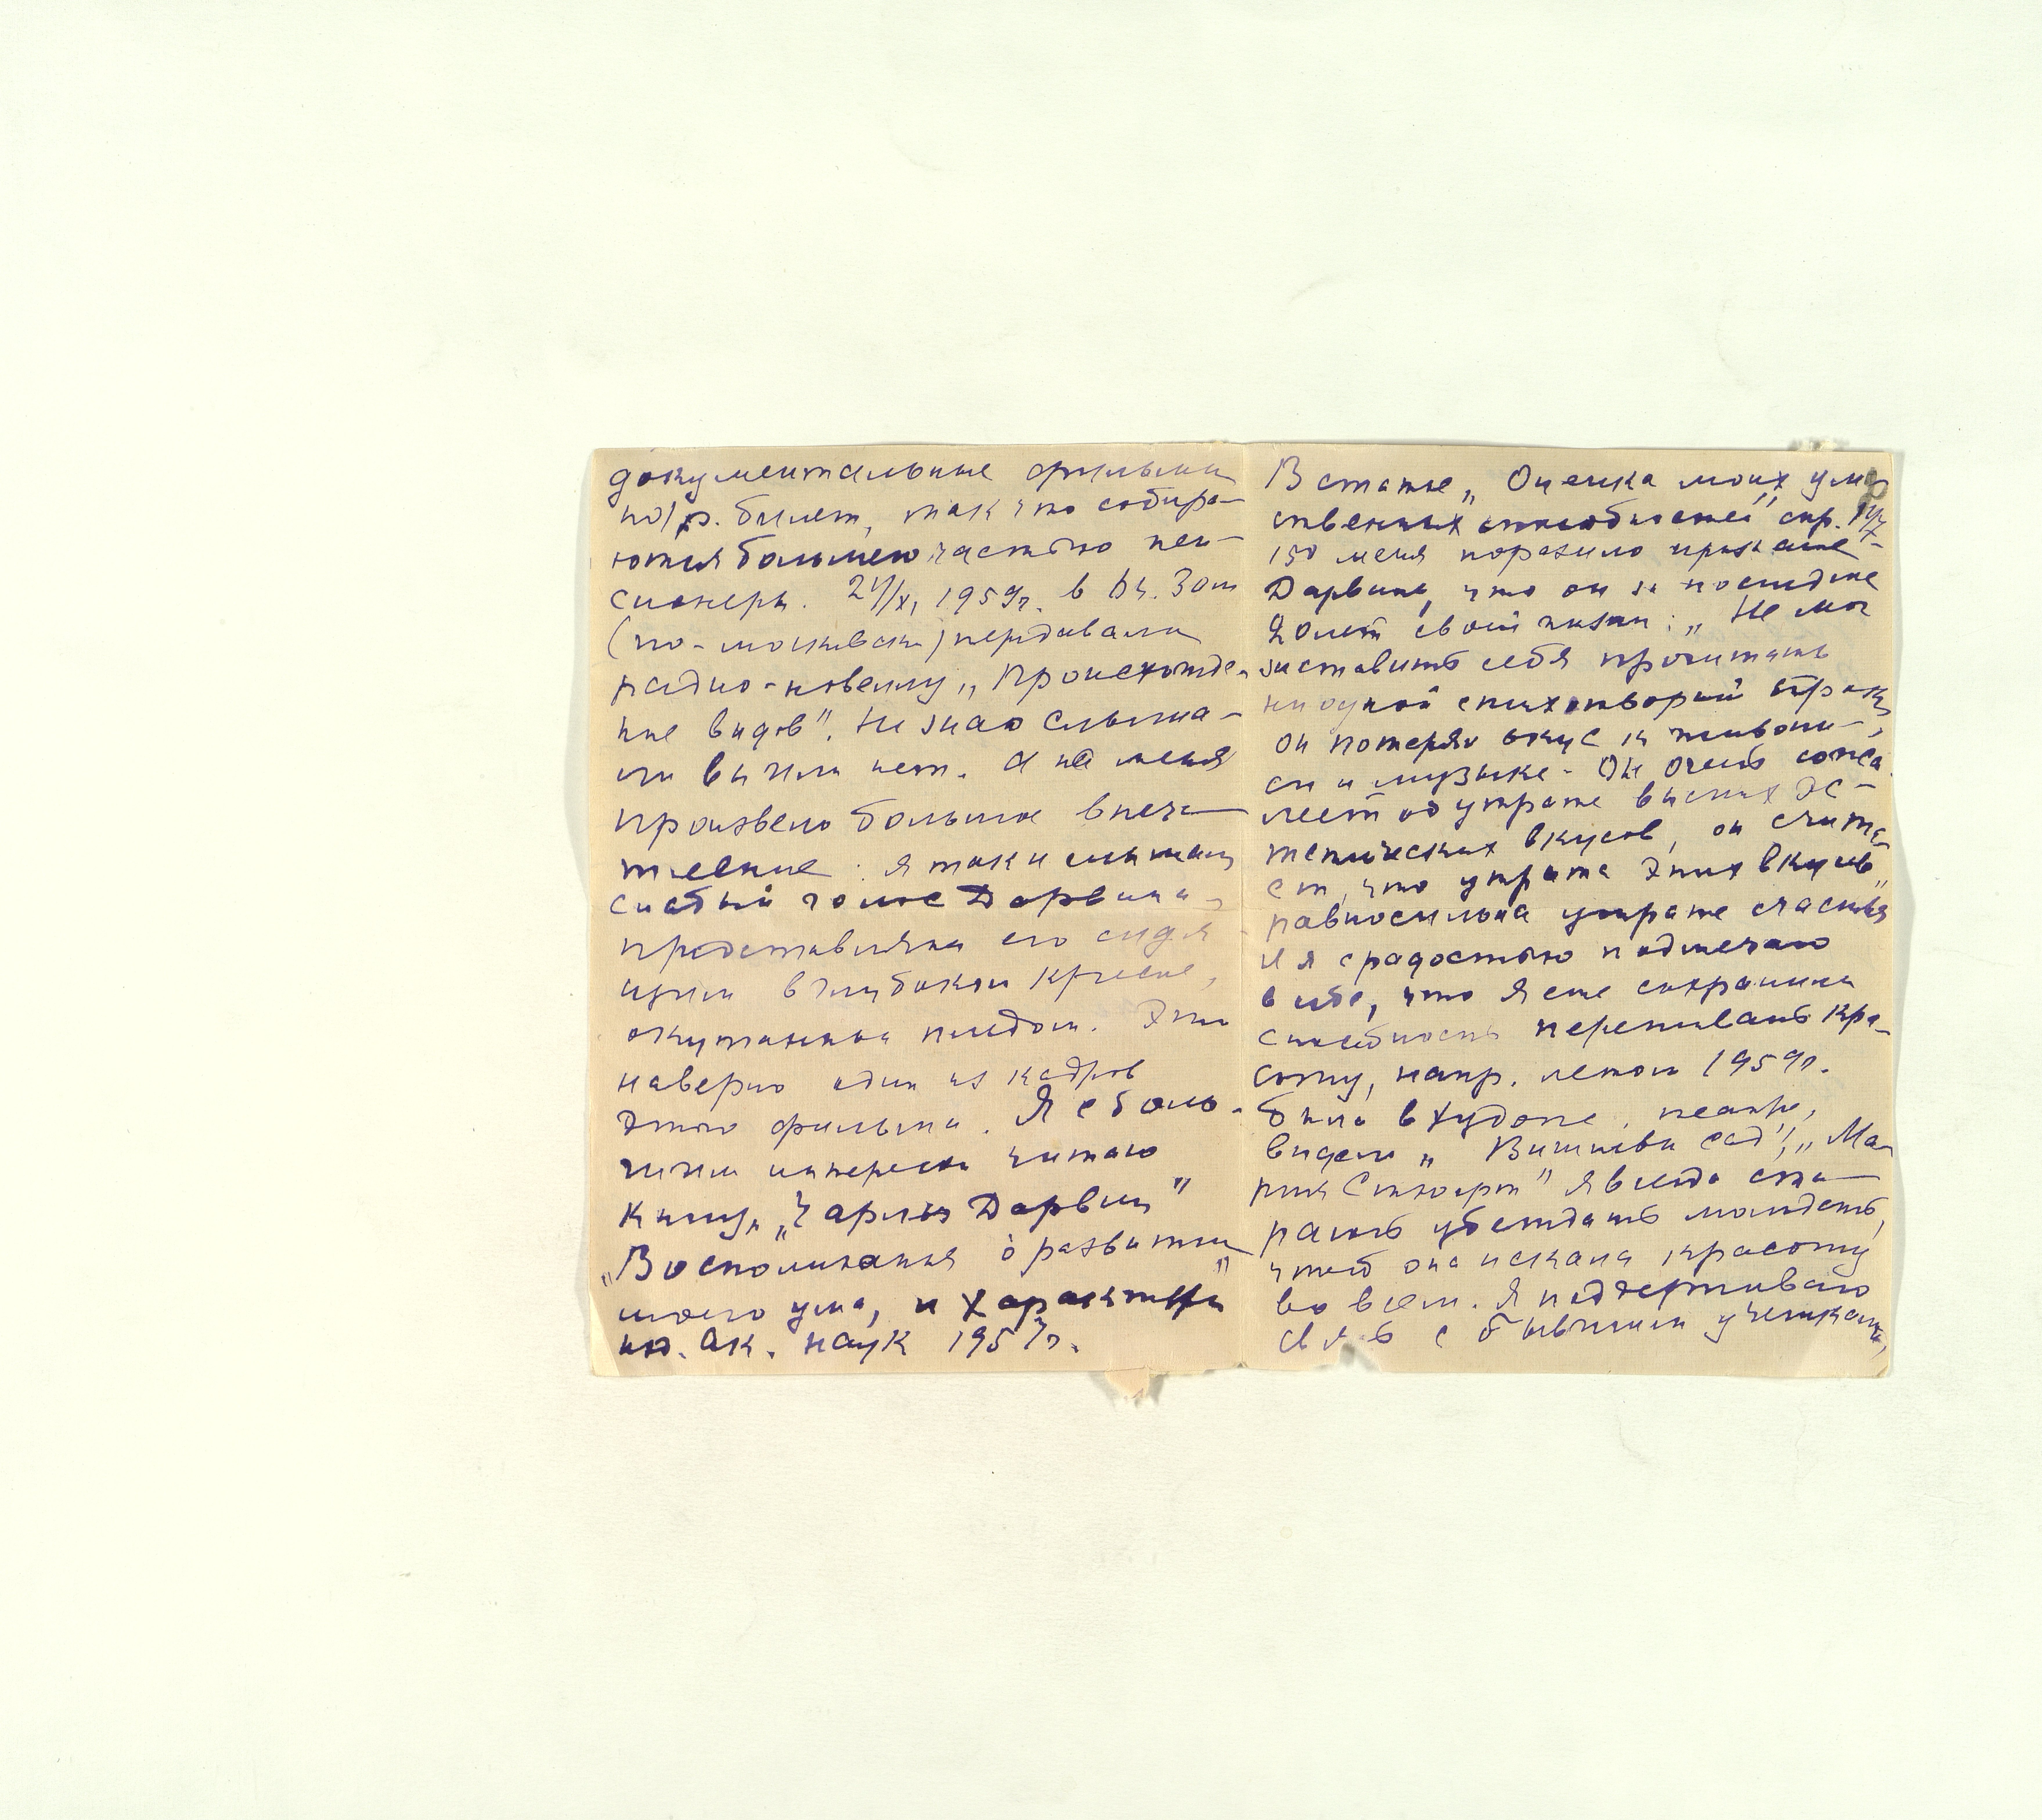 документальные фильмы
по 1 р. билет, так что собира-
ются большею частью пен-
сионеры. 24/XI 1959г. в 6ч. 30м
(по-московски) передавали
радио-новеллу „Происхожде-
ние видов". Не знаю слыша-
ли вы или нет. А на меня
произвело большое впеча-
тление: я так и слышала
слабый голос Дарвина,
представляла его сидя-
щим в глубоком кресле,
окутанным пледом. Это
наверно один из кадров
этого фильма. Я с боль-
шим интересом читаю
книгу „Чарльз Дарвин"
„Воспоминания о развитии
моего ума, и характера"
из. Ак. наук 1957г.
В статье „Оценка моих умс-
твенных способностей" стр. 147
150 меня поразило признание
Дарвина, что он за последние
20 лет своей жизни: „Не мог
заставить себя прочитать
ни одной стихотворной строки,
он потерял вкус к живопи-
си и музыке. Он очень сожа-
леет об утрате высших эс-
тетических вкусов, он счита-
ет, что утрата этих вкусов
равносильна утрате счастья"
И я с радостью подмечаю
в себе, что я еще сохранила
способность переживать кра-
соту, напр. летом 1959г.
была в худож. театре,
видела „Вишневый сад", „Ма-
рия Стюарт" Я всегда ста-
раюсь убеждать молодежь,
чтоб она искала красоту
во всем. Я поддерживаю
связь с бывшими учениками,